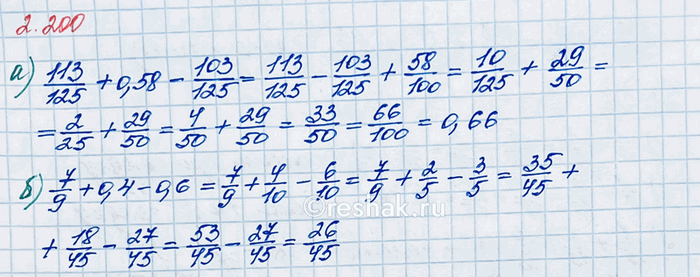 2.200
а) 113/125 + 0,58 − 103/125 = 113/125 − 103/125 + 58/100 = 10/125 + 29/50 =
= 2/25 + 29/50 = 4/50 + 29/50 = 33/50 = 66/100 = 0,66
б) 7/9 + 0,4 − 0,6 = 7/9 + 4/10 − 6/10 = 7/9 + 2/5 − 3/5 = 35/45 +
©reshak.ru
+ 18/45 − 27/45 = 53/45 − 27/45 = 26/45